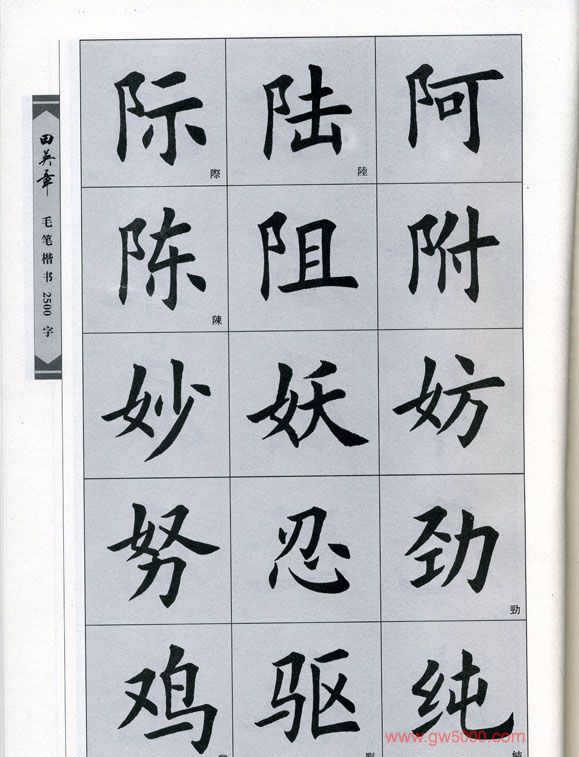 田英章 毛笔楷书2500字
际 陆 阿
際 陸
陈 阻 附
陳
妙 妖 妨
努 忍 劲
勁
鸡 驱 纯
www.gw5000.com